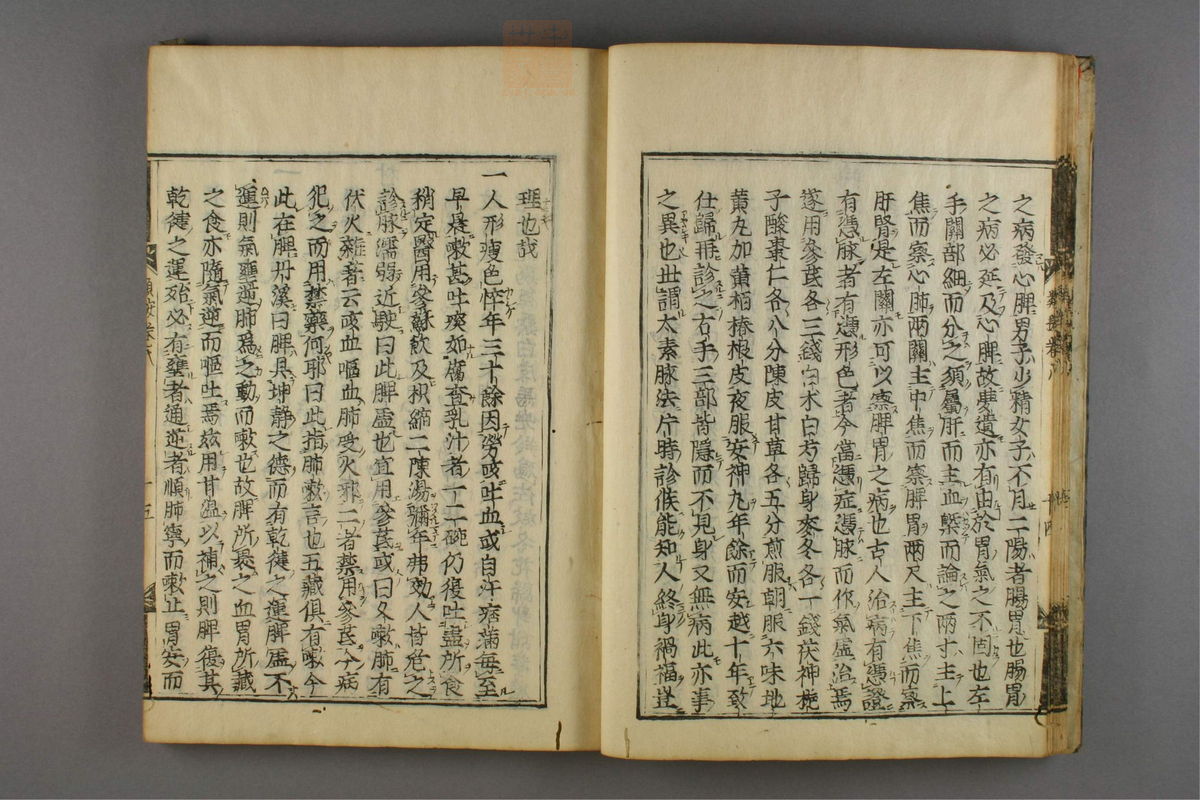 之病發心脾男子少精女子不月二陽者腸胃也腸胃
之病必延及心脾故夢遺亦有由於胃氣之不固也左
手關部細而分之須屬肝而主血槩而論之兩寸主上
焦而察心肺兩關主中焦而察脾胃兩尺主下焦而察
肝腎是左關亦可以察脾胃之病也古人治病有憑證
有憑脉者有憑形色者今當憑症憑脉而作氣虛治焉
遂用參芪各三錢白术白芍歸身麥冬各一錢茯神梔
子酸棗仁各八分陳皮甘草各五分煎服朝服六味地
黃丸加黃栢椿根皮夜服安神丸年餘而安越十年致
仕歸再診之右手三部皆隱而不見身又無病此亦事
之異也世謂太素脉法片時診候能知人終身禍福豈
理也哉
一人形瘦色悴年三十餘因勞咳吐血或自汗痞滿每至
早晨嗽甚吐痰如腐渣乳汁者一二碗仍復吐盡所食
稍定醫用參蘇飲及枳縮二陳湯彌年弗効人皆危之
診脉濡弱近駛曰此脾虛也宜用參芪或曰久嗽肺有
伏火雜著云咳血嘔血肺受火邪二者禁用參芪今病
犯之而用禁藥何耶曰此指肺嗽言也五藏俱有嗽今
此在脾丹溪曰脾具坤靜之德而有乾健之運脾虛不
運則氣壅逆肺爲之動而嗽也故脾所裹之血胃所藏
之食亦隨氣逆而嘔吐焉兹用甘溫以補之則脾復其
乾健之運殆必有壅者通逆者順肺寧而嗽止胃安而